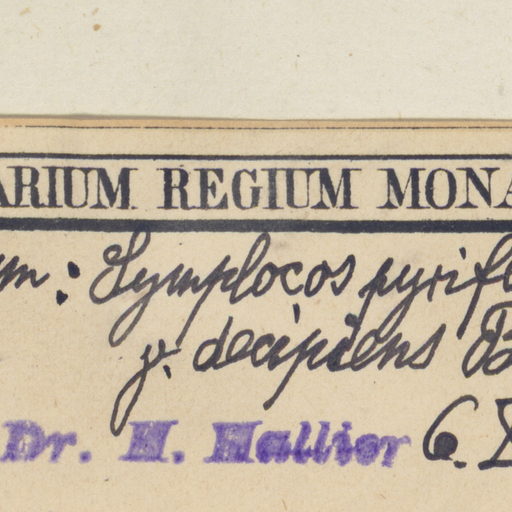 ARIUM REGIUM MONA
ym: Symplocos pyrifl
γ. decipiens B
Dr. H. Hallier 6.